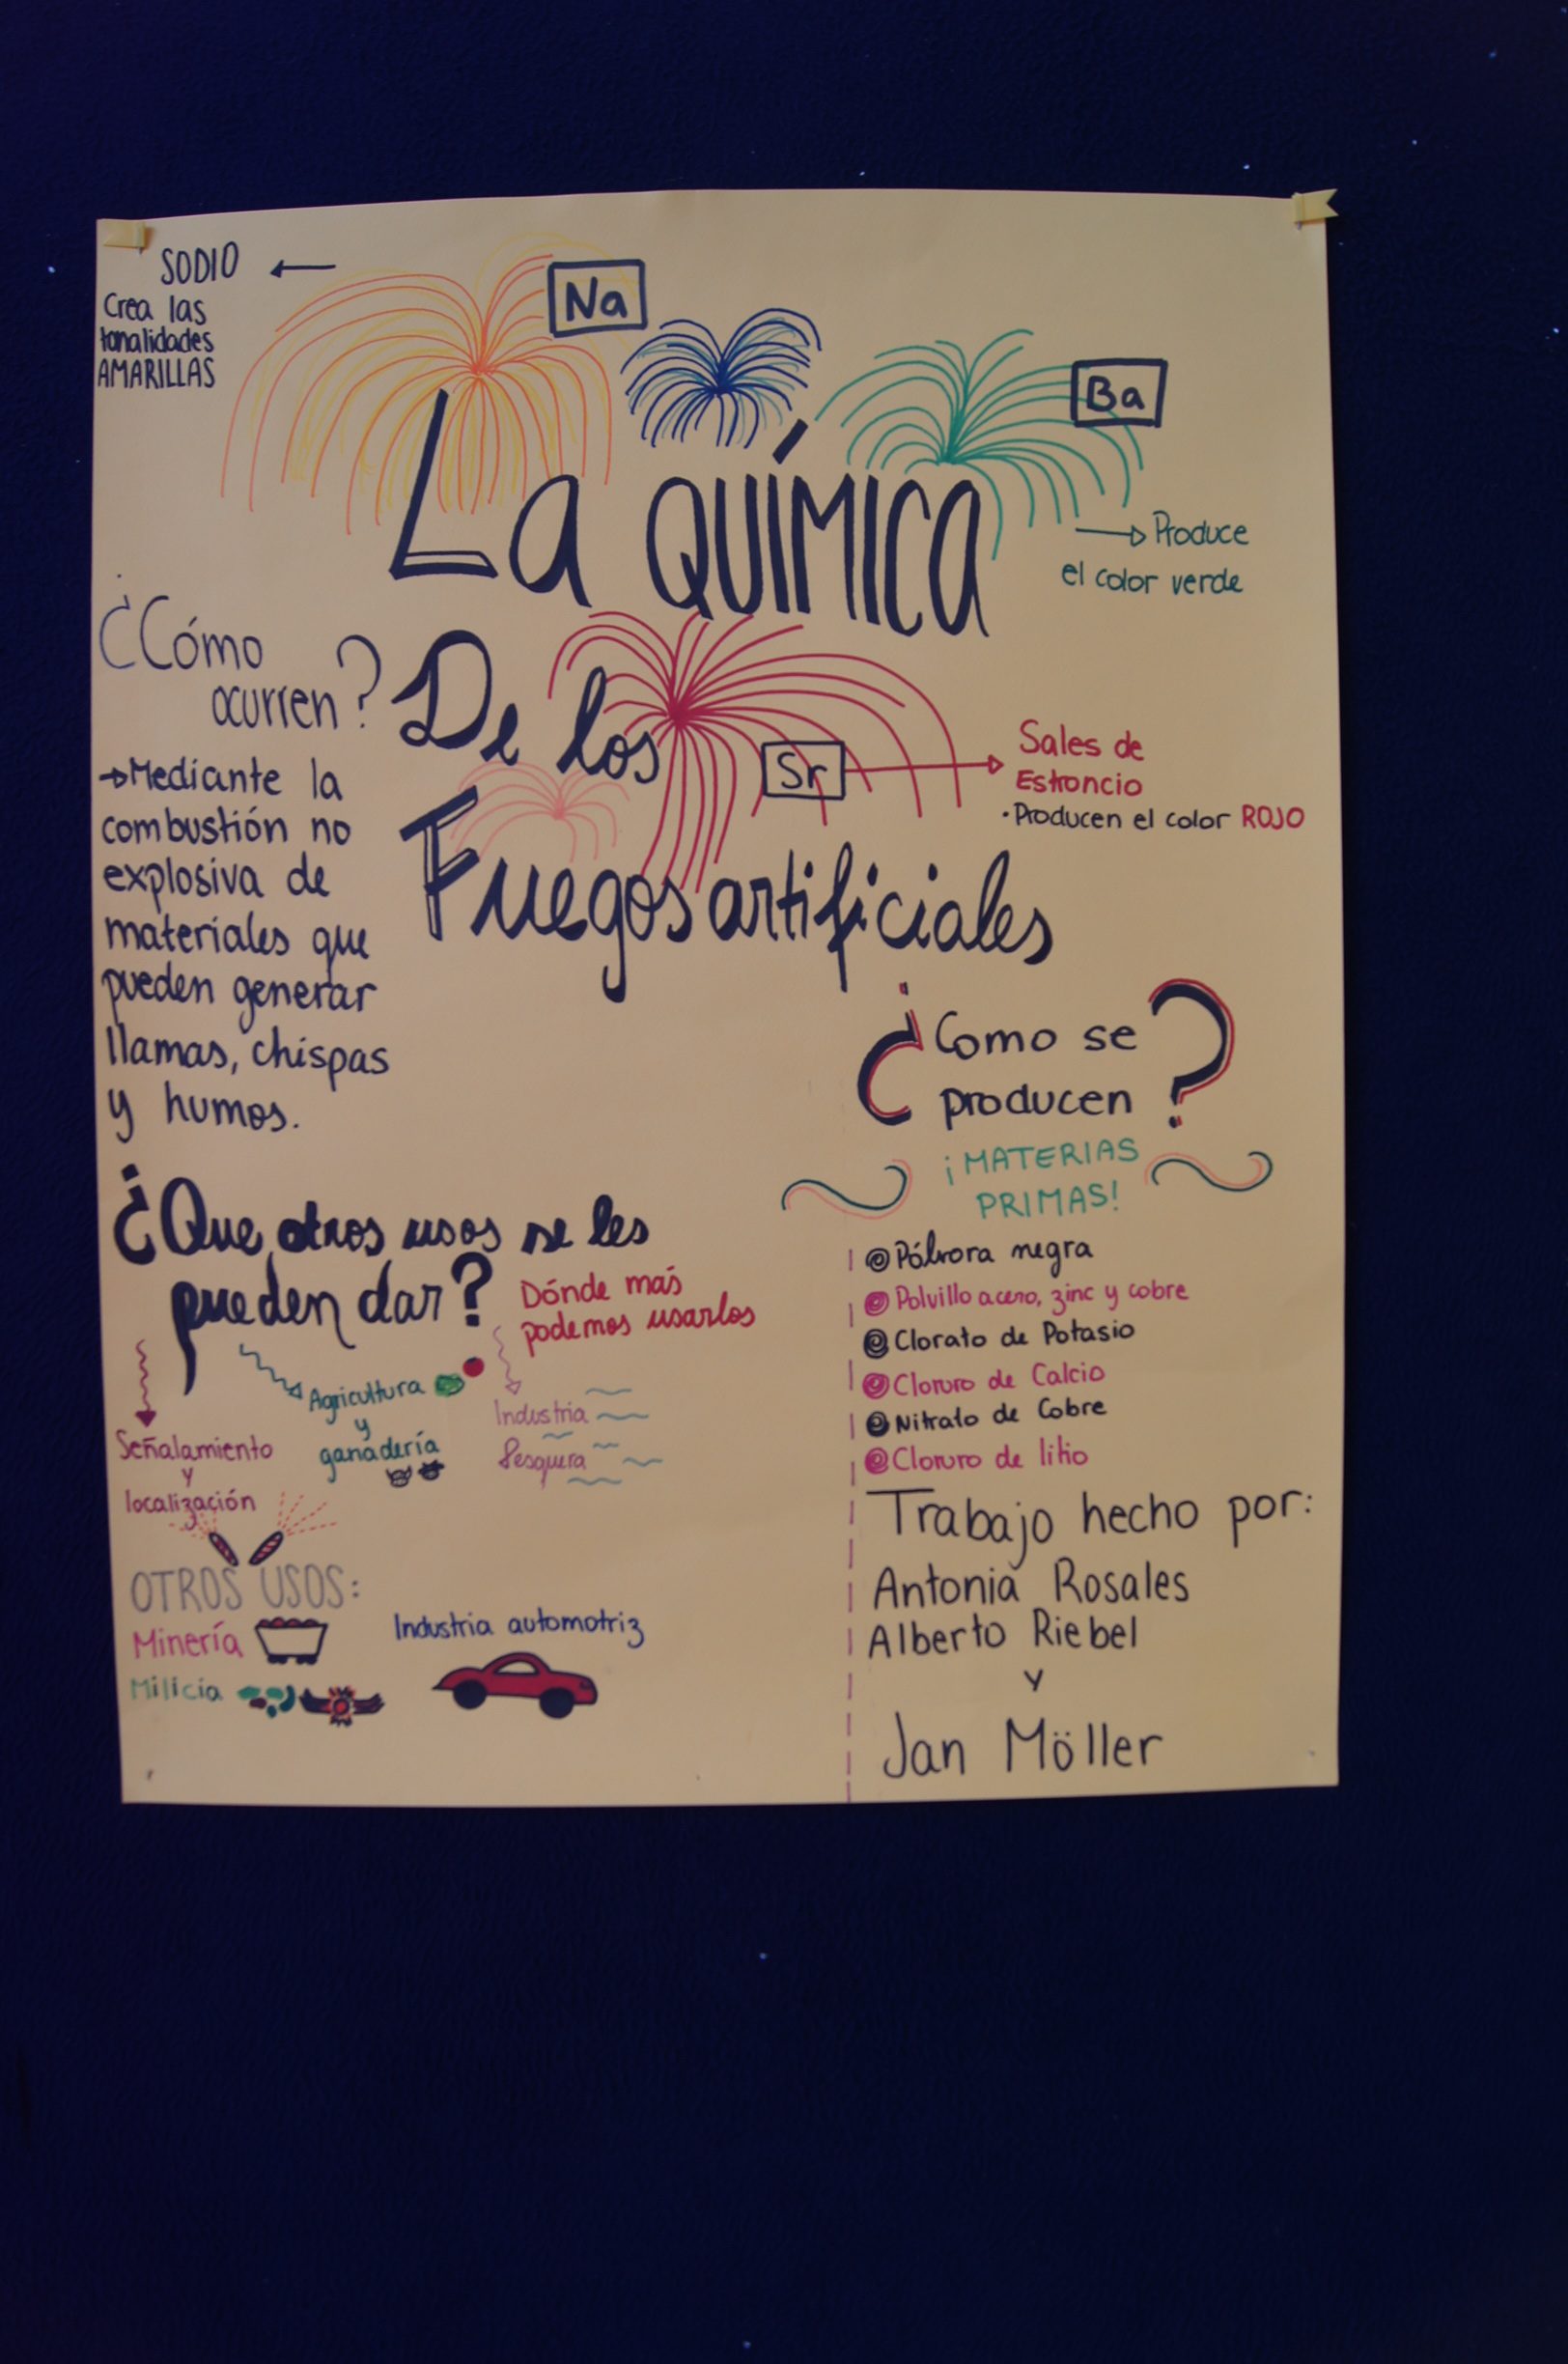 SODIO
Crea las
tonalidades
AMARILLAS
Na
Ba
La QUÍMICA
De los
Fuegos artificiales
Produce
el color verde
Sr
Sales de
Estroncio
·Producen el color ROJO
¿Cómo
ocurren?
→Mediante la
combustión no
explosiva de
materiales que
pueden generar
llamas, chispas
y humos.
¿Como se
producen?
¡MATERIAS
PRIMAS!
Pólvora negra
Polvillo acero, zinc y cobre
Clorato de Potasio
Cloruro de Calcio
Nitrato de Cobre
Cloruro de litio
¿Que otros usos se les
pueden dar?
Dónde más
podemos usarlos
Señalamiento
y
localización
Agricultura
y
ganadería
Industria
Pesquera
OTROS USOS:
Minería
Milicia
Industria automotriz
Trabajo hecho por:
Antonia Rosales
Alberto Riebel
y
Jan Möller